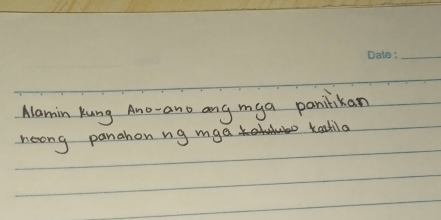 Date:
Alamin kung Ano-ano ang mga panitikan
noong panahon ng mga kastila